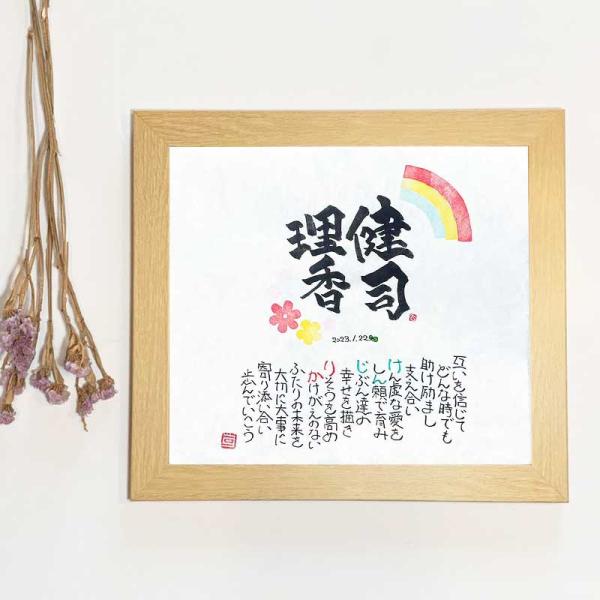 健司
理香
2023.1.22
互いを信じて
どんな時でも
助け励まし
支え合い
けん虚な愛を
しん願で育み
じぶん達の
幸せを描き
りそうを高め
かけがえのない
ふたりの未来を
大切に大事に
寄り添い合い
歩んでいこう